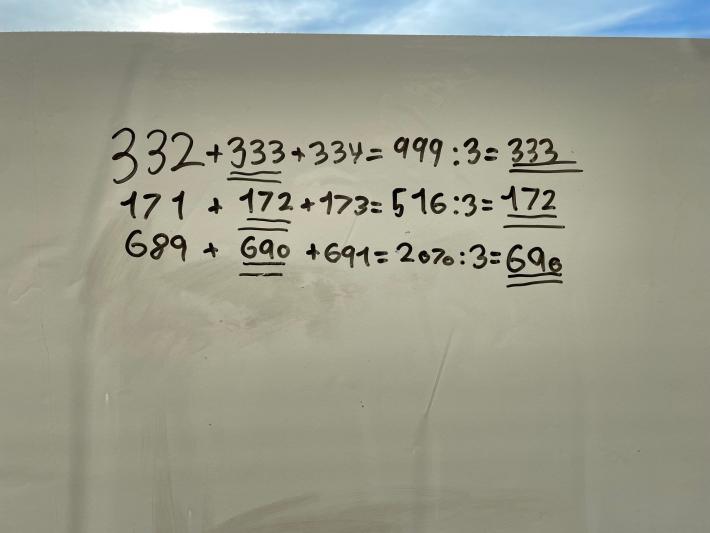 332+333+334=999:3=333
171+172+173=516:3=172
689+690+691=2070:3=690